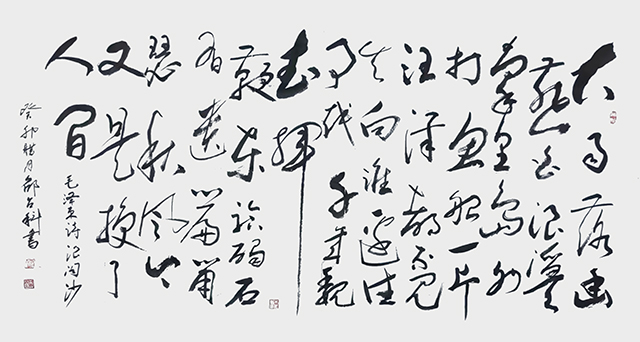 大雨落幽
燕白浪滔天
秦皇岛外
打鱼船一片
汪洋都不见
知向谁边往
事越千年魏
武挥
鞭东临碣石
有遗篇萧
瑟秋风今
又是换了
人间
毛泽东诗浪淘沙
癸卯腊月邵占科書